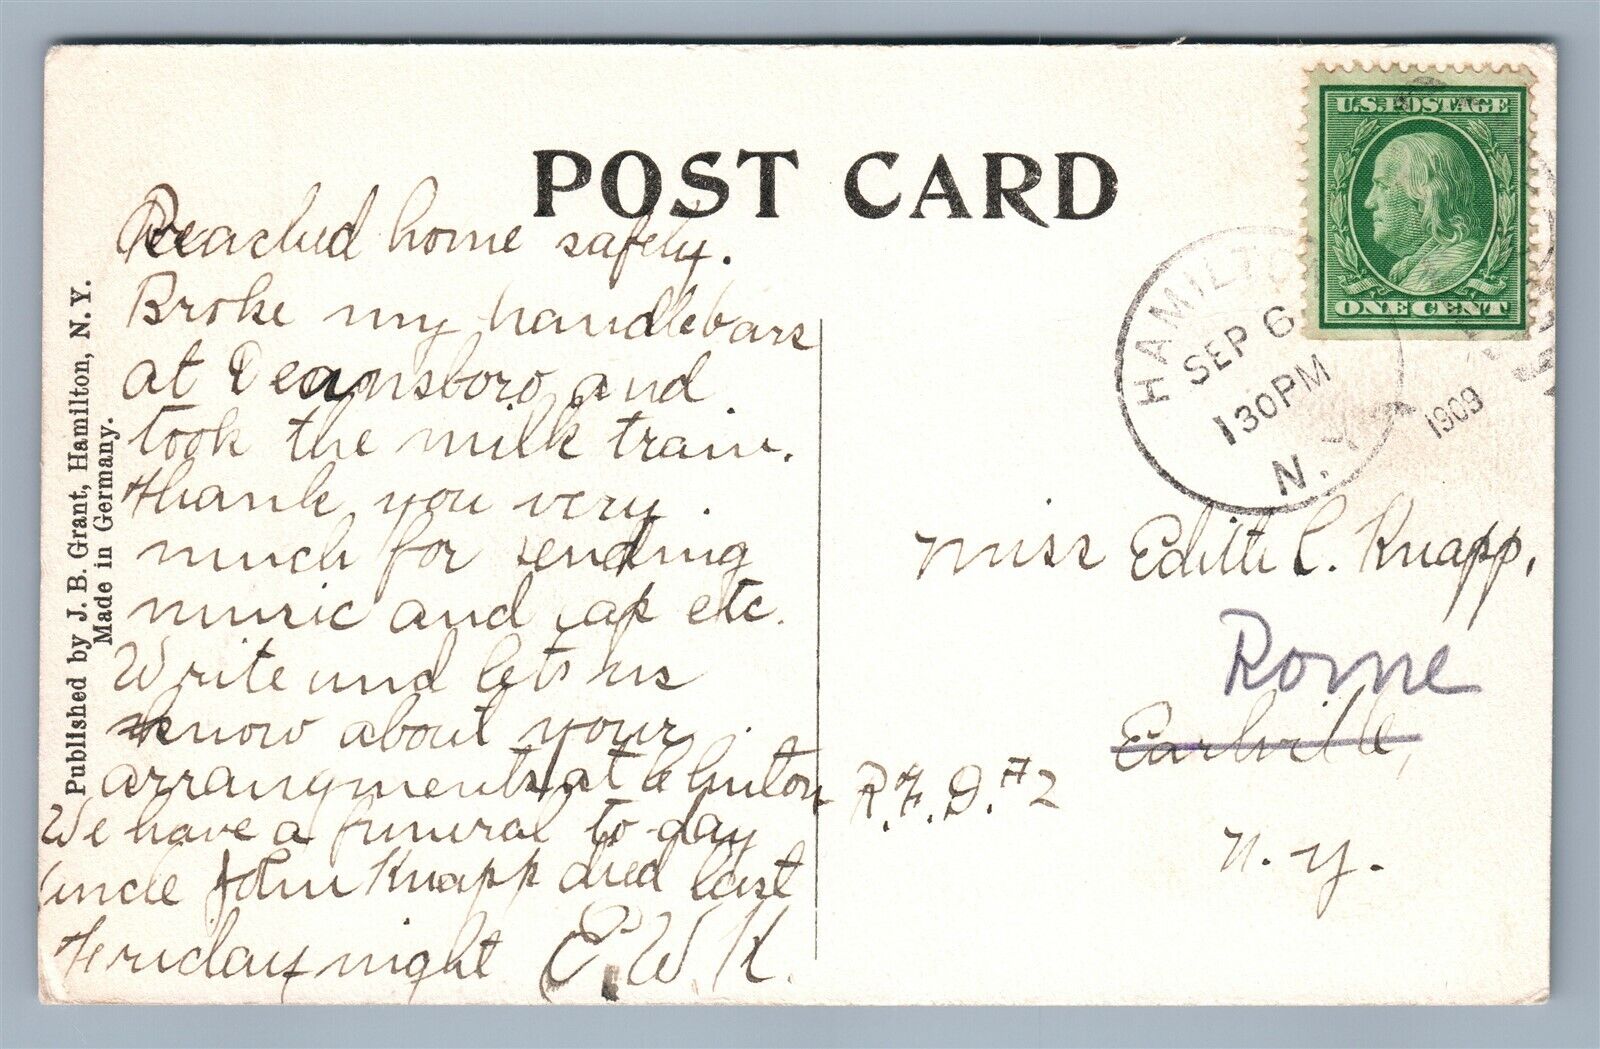 POST CARD
U.S. POSTAGE
ONE CENT
HAMILTON
SEP 6
130PM
N.Y.
1909
Published by J. B. Grant, Hamilton, N. Y.
Made in Germany.
Reached home safety.
Broke my handlebars
at Deansboro and
took the milk train.
Thank you very
much for sending
music and cap etc.
Write and let us
know about your
arrangments at Clinton
We have a funeral to-day
Uncle John Knapp died last
Friday night E. W. K.
Miss Edith C. Knapp,
Rome
Earlville,
R.F.D. #2
N.Y.